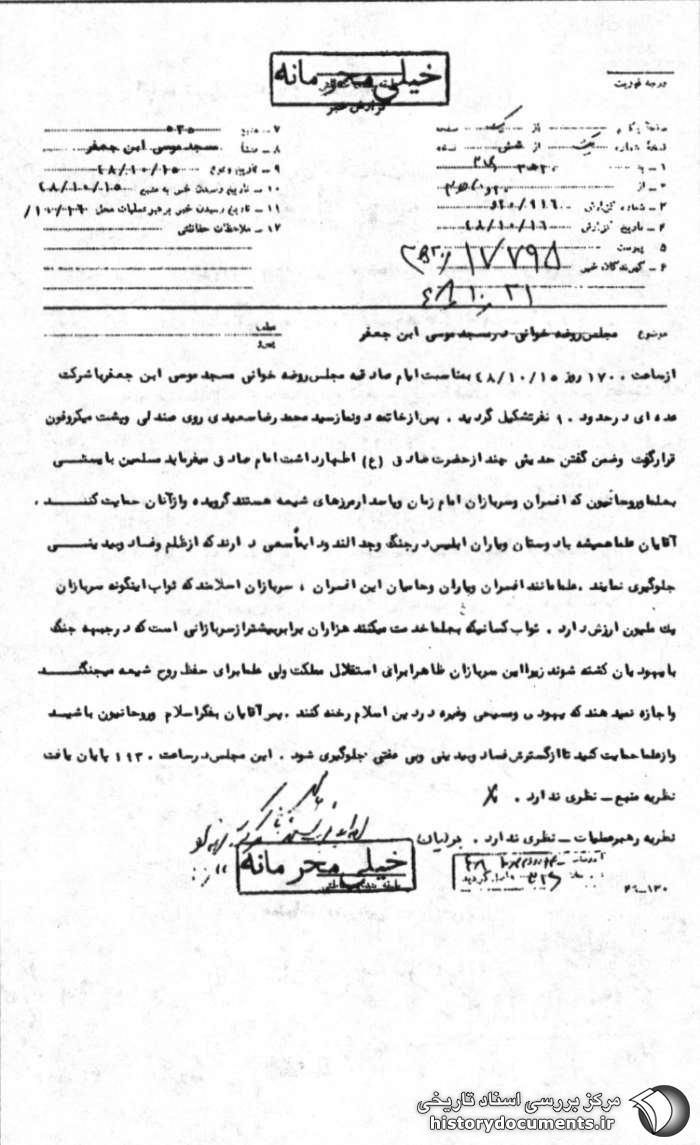 خیلی محرمانه
گزارش خبر
درجه فوریت
صفحه یک از یک صفحه
نسخه شماره از شش نسخه
۱ ـ به
۲ ـ از
۳ ـ شماره گزارش ۹۱۶/۲۰
۴ ـ تاریخ گزارش ۴۸/۱۰/۱۶
۵ پیوست
۶ ـ گیرندگان خبر
۱۷۷۹۵
۴۸/۱۰/۲۱
۷ ـ منبع ۵۳۵
۸ ـ منشأ مسجد موسی ابن جعفر
۹ ـ تاریخ وقوع ۴۸/۱۰/۱۵
۱۰ ـ تاریخ رسیدن خبر به منبع ۴۸/۱۰/۱۵
۱۱ ـ تاریخ رسیدن خبر به رهبر عملیات محل ۱۰/۱۶/
۱۲ ـ ملاحظات حفاظتی
موضوع مجلس روضه خوانی در مسجد موسی ابن جعفر
عطف
پیرو
از ساعت ۱۷۰۰ روز ۴۸/۱۰/۱۵ بمناسبت امام صادقیه مجلس روضه خوانی مسجد موسی ابن جعفر با شرکت
عده ای در حدود ۹۰ نفر تشکیل گردید . پس از خاتمه دو نماز سید محمد رضا سعیدی روی صندلی و پشت میکروفون
قرار گرفت و ضمن گفتن حدیثی چند از حضرت صادق (ع) اظهار داشت امام صادق میفرماید مسلمین بایستی
بعلما و روحانیون که افسران و سربازان امام زمان و پاسدار مرزهای شیعه هستند گرویده و از آنان حمایت کنند .
آقایان علما همیشه با دوستان و یاران ابلیس در جنگ و جدالند و دائماً سعی دارند که از ظلم و فساد و بیدینی
جلوگیری نمایند . علما مانند افسران و یاران و حامیان این افسران ، سربازان اسلامند که ثواب اینگونه سربازان
یک ملیون ارزش دارد . ثواب کسانیکه بعلما خدمت میکنند هزاران برابر بیشتر از سربازانی است که در جبهه جنگ
با یهودیان کشته شوند زیرا این سربازان ظاهرا برای استقلال مملکت ولی علما برای حفظ روح شیعه میجنگند
و اجازه نمیدهند که یهودی و مسیحی و غیره در دین اسلام رخنه کنند . پس آقایان بفکر اسلام و روحانیون باشید
و از علما حمایت کنید تا از گسترش فساد و بیدینی و بی عفتی جلوگیری شود . این مجلس در ساعت ۱۹۳۰ پایان یافت
نظریه منبع ـ نظری ندارد .
نظریه رهبر عملیات ـ نظری ندارد .
خیلی محرمانه
۱۳۰ـ۲۶
مرکز بررسی اسناد تاریخی
historydocuments.ir